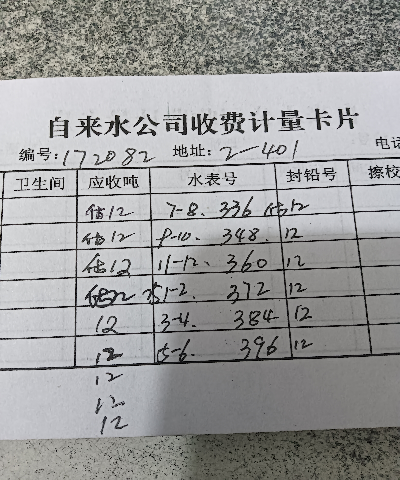 自来水公司收费计量卡片
编号:172082 地址:2-401 电话
卫生间 应收吨 水表号 封铅号 擦校
估12 7-8. 336 估12
估12 9-10. 348. 12
估12 11-12. 360 12
估12 25 1-2. 372 12
12 3-4. 384 12
12 5-6. 396 12
12
12
12